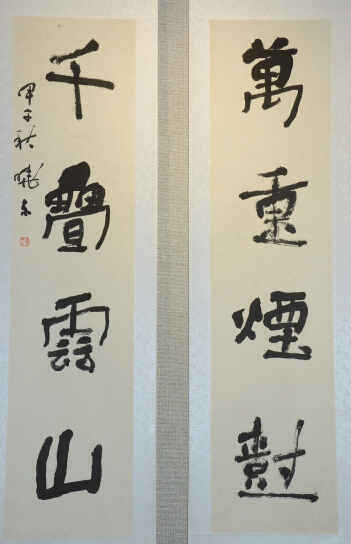 萬重煙
千疊雲山
甲子秋曉